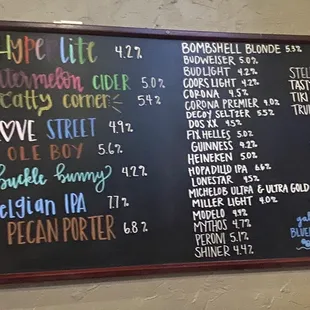 Hype Lite 4.2%
Watermelon CIDER 5.0%
Catty corner 5.4%
LOVE STREET 4.9%
OLE BOY 5.6%
buckle bunny 4.2%
Belgian IPA 7.7%
PECAN PORTER 6.8%
BOMBSHELL BLONDE 5.3%
BUDWEISER 5.0%
BUD LIGHT 4.2%
COORS LIGHT 4.2%
CORONA 4.5%
CORONA PREMIER 4.0%
DECOY SELTZER 5.5%
DOS XX 4.5%
FIX HELLES 5.0%
GUINNESS 4.2%
HEINEKEN 5.0%
HOPADILLO IPA 6.6%
LONESTAR 4.5%
MICHELOB ULTRA & ULTRA GOLD
MILLER LIGHT 4.0%
MODELO 4.5%
MYTHOS 4.7%
PERONI 5.1%
SHINER 4.4%
STEL
TAST
TIKI
TRU
gal
BLUE